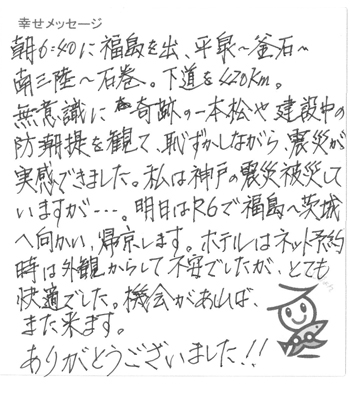 幸せメッセージ
朝6:40に福島を出、平泉〜釜石〜
南三陸〜石巻。下道を420Km。
無意識に奇跡の一本松や建設中の
防潮提を観て、恥ずかしながら、震災が
実感できました。私は神戸の震災被災して
いますが・・・。明日はR6で福島へ茨城
へ向かい、帰京します。ホテルはネット予約
時は外観からして不安でしたが、とても
快適でした。機会があれば、
また来ます。
ありがとうございました!!